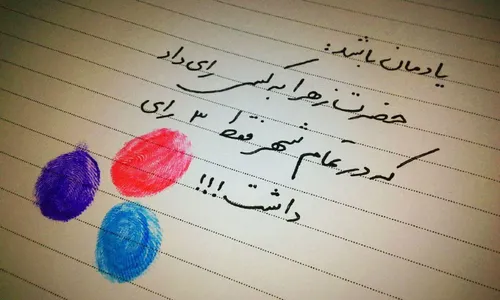 یادمان باشد:
حضرت زهرا به کسی رای داد
که در تمام شهر فقط ۳ رای
داشت!!!